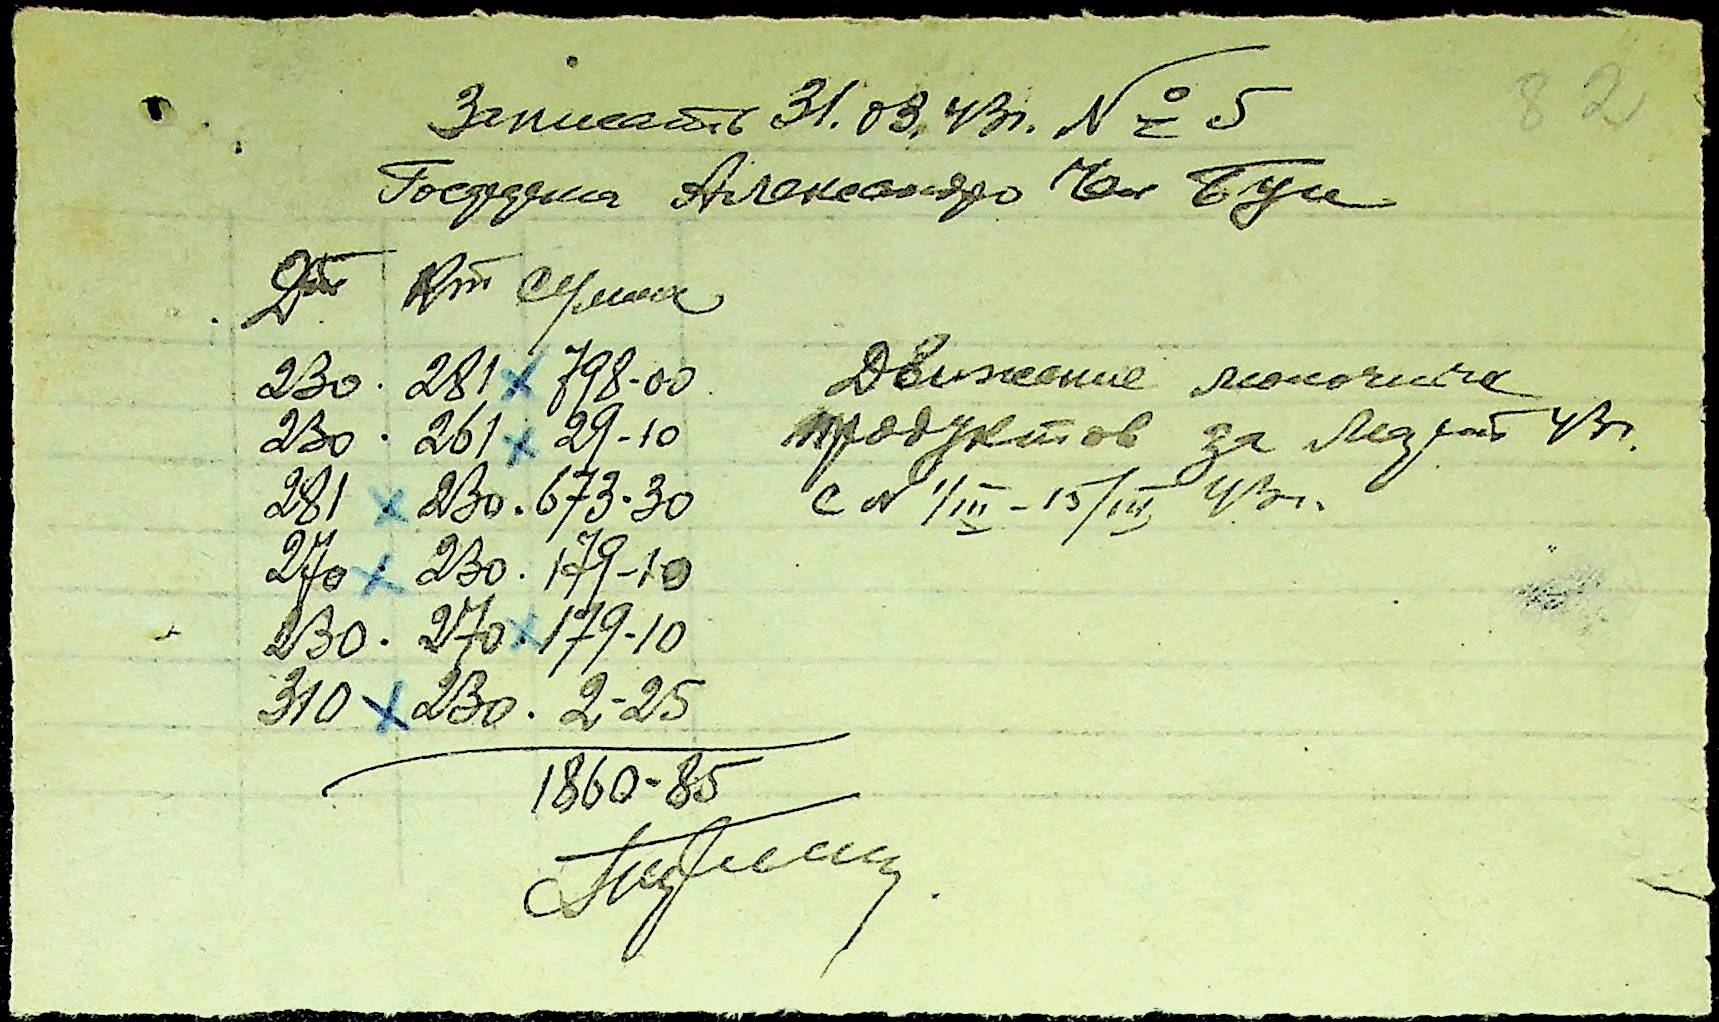 82
Записать 31.03.43г. № 5
Александро
Дт Кт Сумма
230. 281 x 798-00 Движение молочных
230. 261 x 29-10 продуктов за Март 43г.
281 x 230. 673-30 с 1/III - 15/III 43г.
270 x 230. 179-10
230. 270 x 179-10
310 x 230. 2-25
1860-85